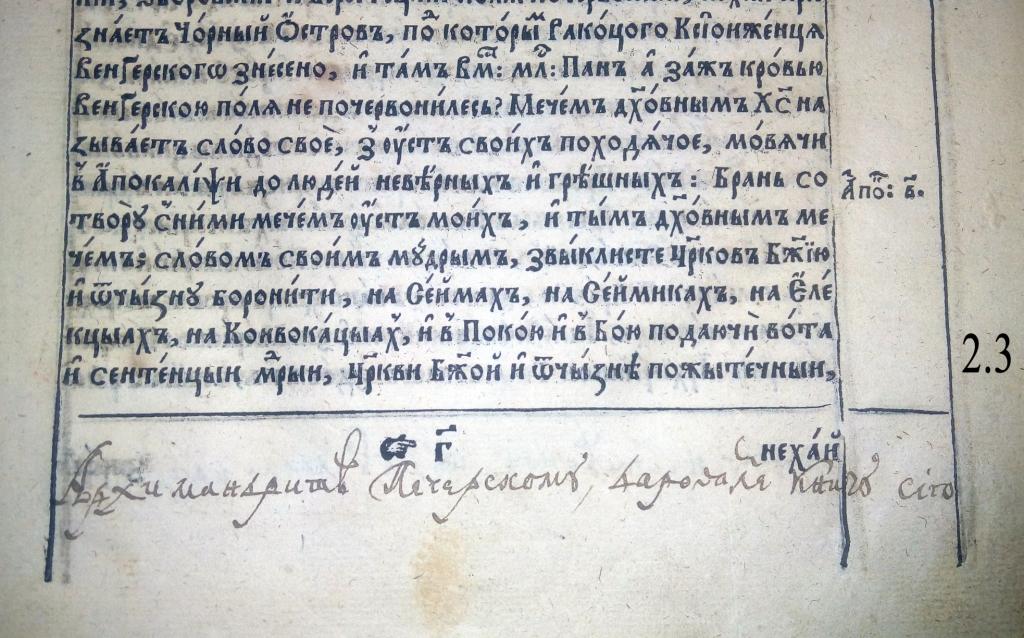 знае́тъ Чо́рный Ѻ҆́стровъ, по҇ кото́ры҇ Рако́цого Ксіонже́нця
Венґерскогѡ зне́сено, и҆ та́мъ Вм҃: мл҃: Панъ а҆ за́жъ кро́вью
Венґерскою по́ля не почервони́лесь? Мече́мъ дх҃о́внымъ Хс҃ на
зыва́етъ сло́во своѐ, з҆ ᲂу҆́стъ свои́хъ походя́чое, мо́вячи
в҆ А҆покалі́ѱи до люде́й неве́рныхъ и҆ грѣ́шныхъ: Брань со
творю̀ с̾ни́ми мече́мъ ᲂу҆́стъ мои́хъ, и҆ ты́мъ дх҃о́внымъ ме
че́мъ; сло́вомъ свои́мъ му́дрымъ, звы́клисте Цр҃ковъ Бж҃їю
и҆ ѿчы́зну борони́ти, на Се́ймахъ, на Се́ймикахъ, на Е҆ле́
кцыахъ, на Конвока́цыа҇, и҆ в҆ Поко́ю и҆ в҆ Бо́ю подаючѝ во́та
и҆ сенте́нцыи мр҃ыи, Цр҃кви Бж҃ой и҆ ѿчы́знѣ пожыте́чныи,
А҆по҇: в҃.
2.3
☞ г҃
неха́й
Архимандритѡ Печерскомъ, даровалъ книгъ сію